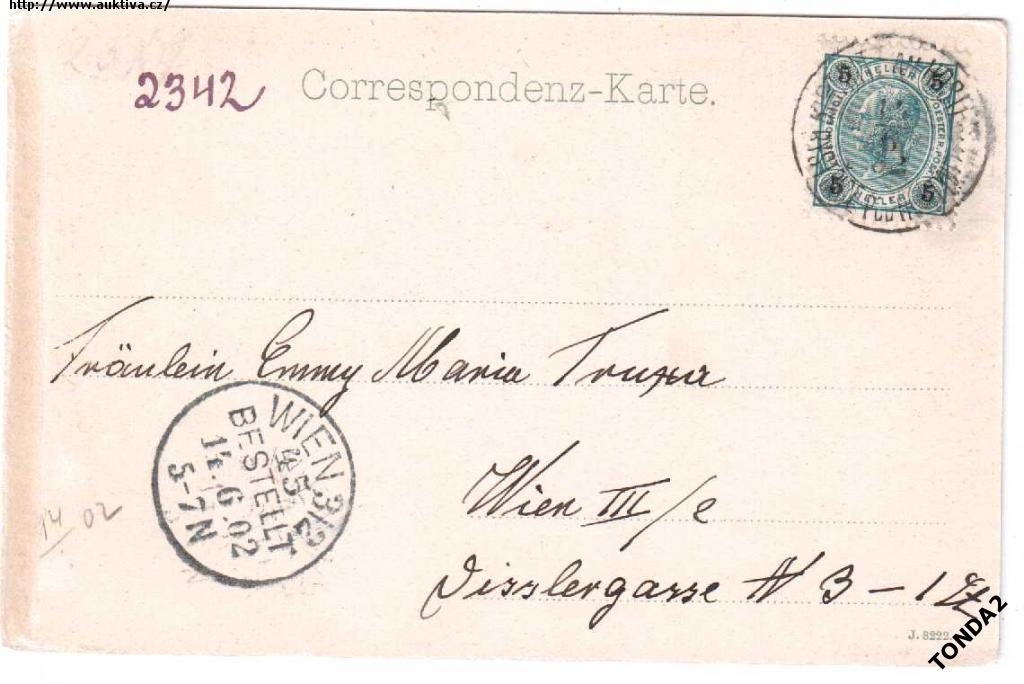 http://www.auktiva.cz/
2342
Correspondenz-Karte.
5 HELLER 5
5 HELLER 5
Fräulein Emmy Maria Truxa
WIEN 3/2
45
BESTELLT
14.6.02
5-7N
14 02
Wien III/2
Disslergasse N 3 - 1
J. 8222.
TONDA2